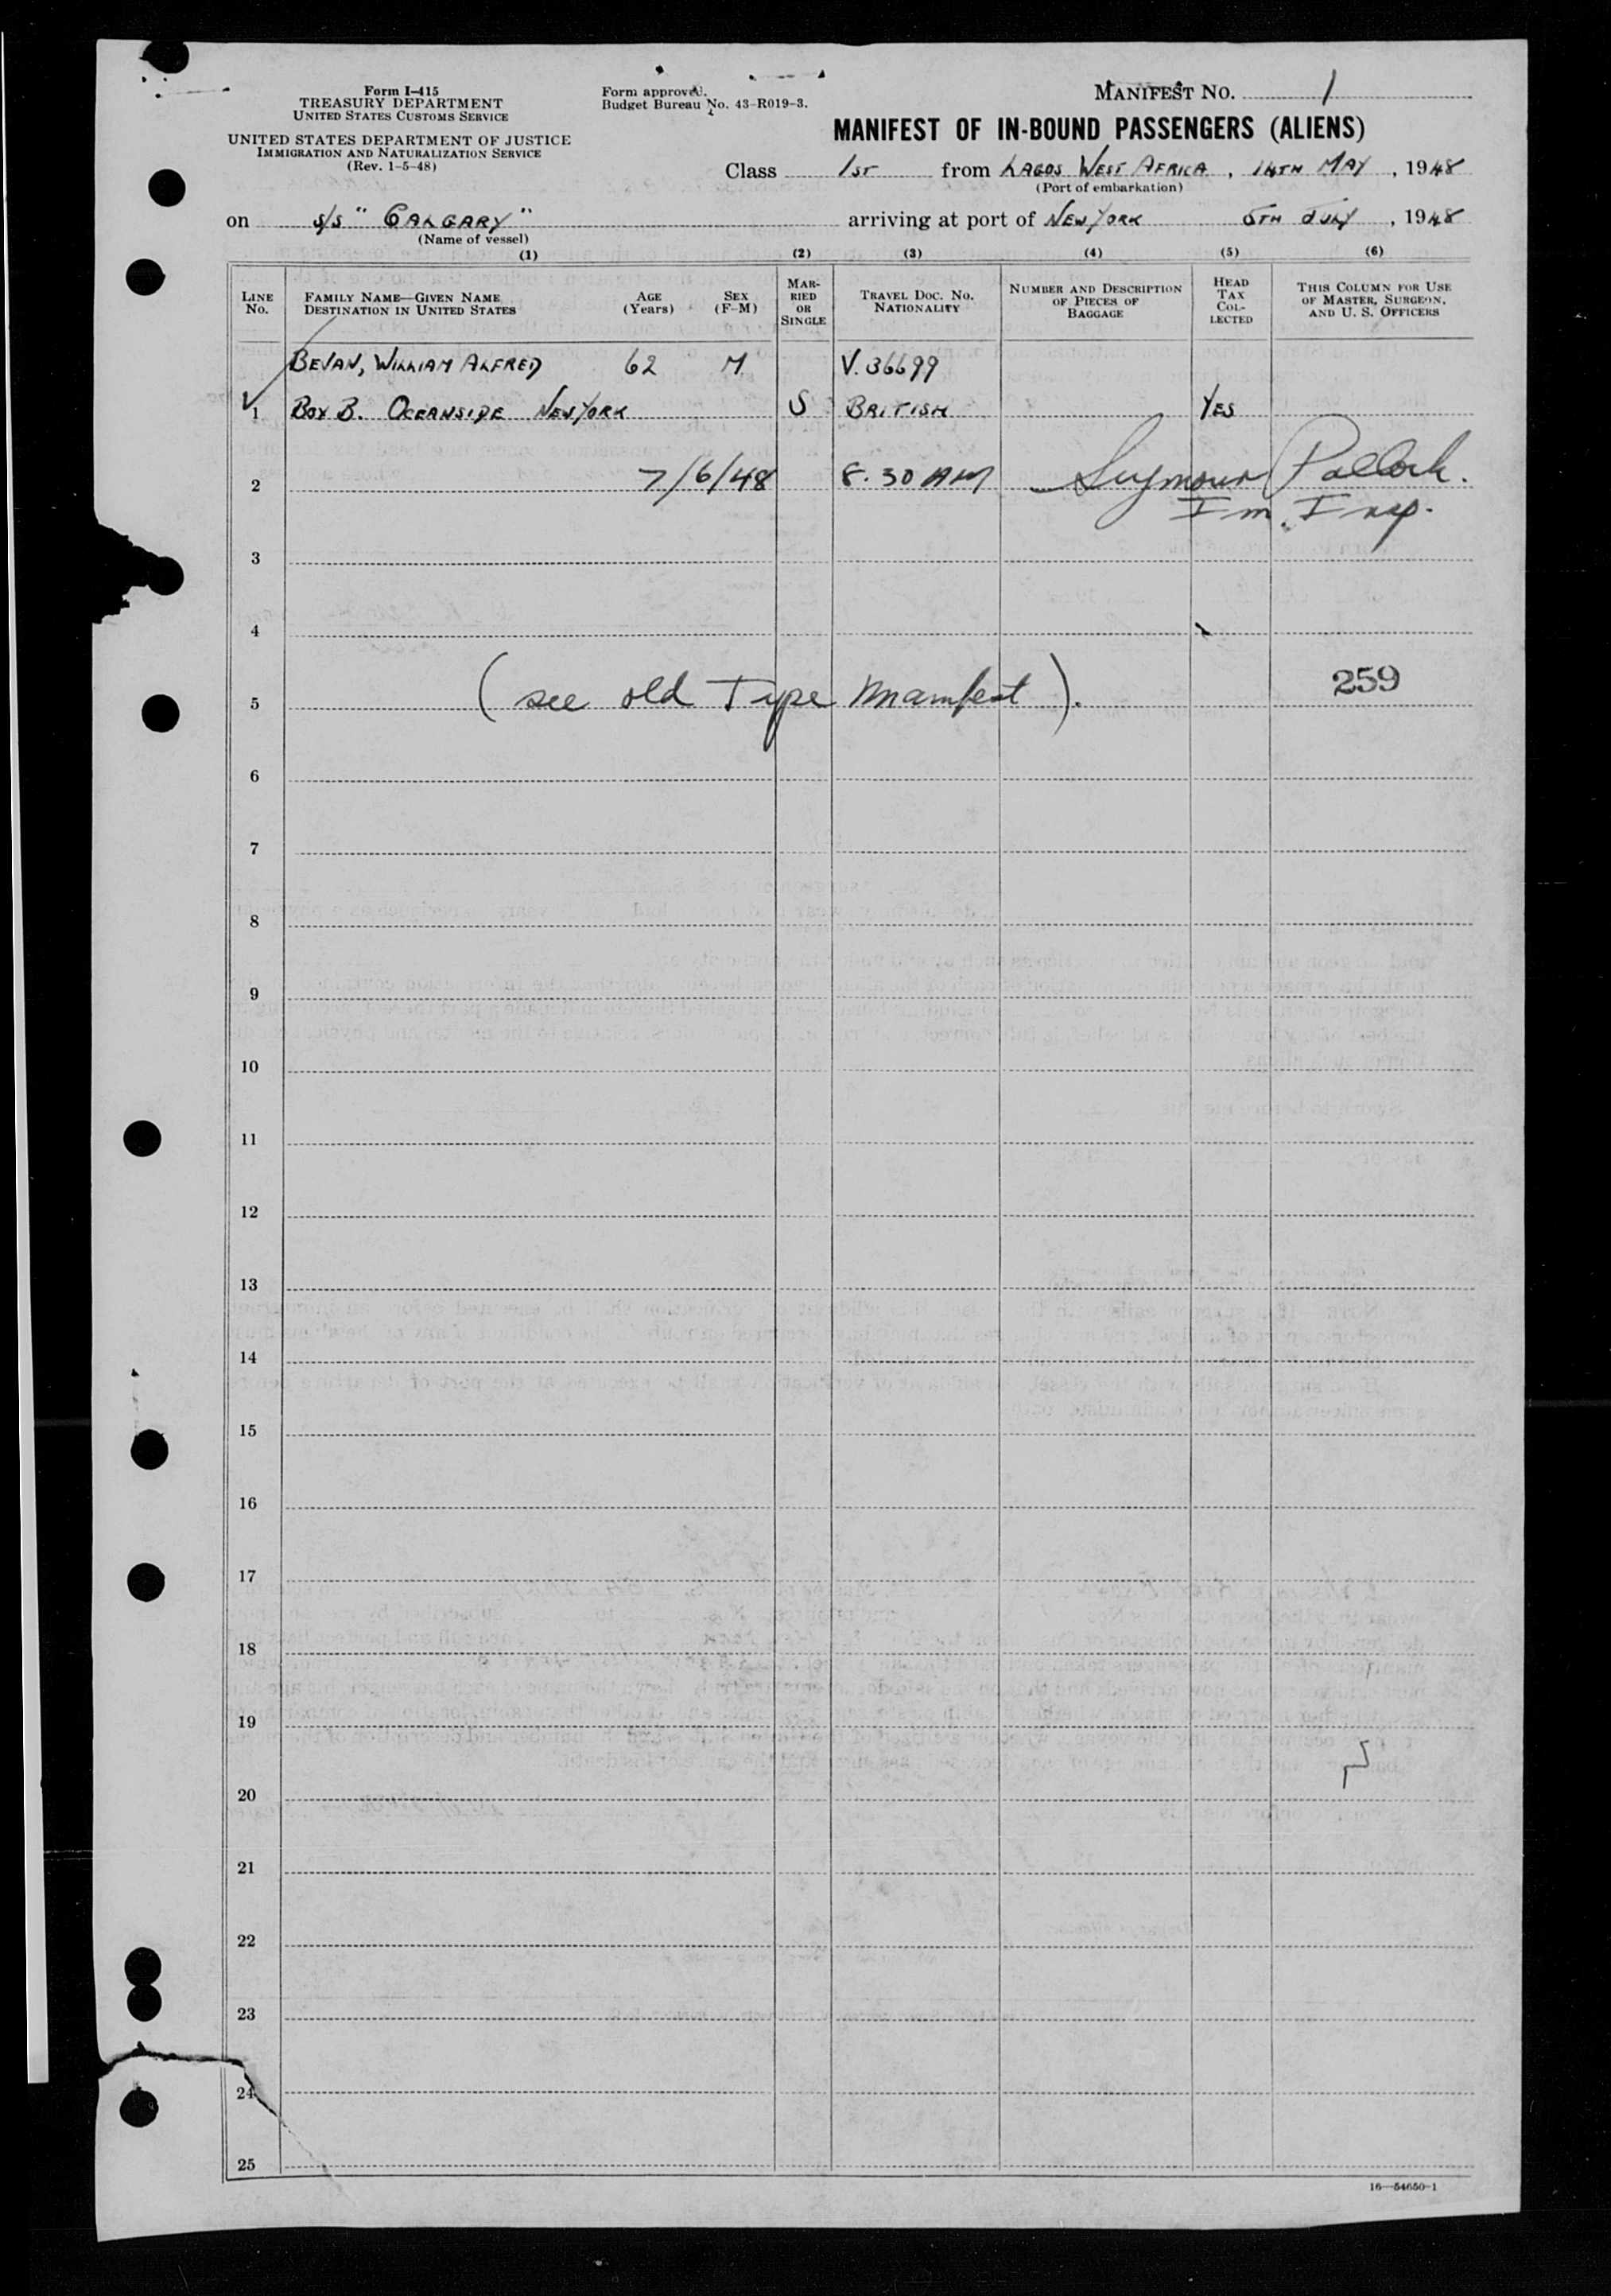 Form I-415
TREASURY DEPARTMENT
UNITED STATES CUSTOMS SERVICE
UNITED STATES DEPARTMENT OF JUSTICE
IMMIGRATION AND NATURALIZATION SERVICE
(Rev. 1-5-48)
Form approved.
Budget Bureau No. 43-R019-3.
MANIFEST NO. 1
MANIFEST OF IN-BOUND PASSENGERS (ALIENS)
Class 1ST from LAGOS WEST AFRICA, 14TH MAY, 1948
(Port of embarkation)
on S/S "CALGARY" arriving at port of NEW YORK 5TH JULY, 1948
(Name of vessel)
(1) (2) (3) (4) (5) (6)
LINE No.
FAMILY NAME—GIVEN NAME
DESTINATION IN UNITED STATES
AGE (Years)
SEX (F-M)
MARRIED OR SINGLE
TRAVEL DOC. NO. NATIONALITY
NUMBER AND DESCRIPTION OF PIECES OF BAGGAGE
HEAD TAX COLLECTED
THIS COLUMN FOR USE OF MASTER, SURGEON, AND U. S. OFFICERS
BEVAN, WILLIAM ALFRED 62 M V. 36699
1 BOX B. OCEANSIDE NEW YORK S BRITISH YES
2 7/6/48 8.30 AM Seymour Pollock.
Im. Insp.
3
4
5 (see old Type Manifest). 259
6
7
8
9
10
11
12
13
14
15
16
17
18
19
20
21
22
23
24
25
16—54650-1